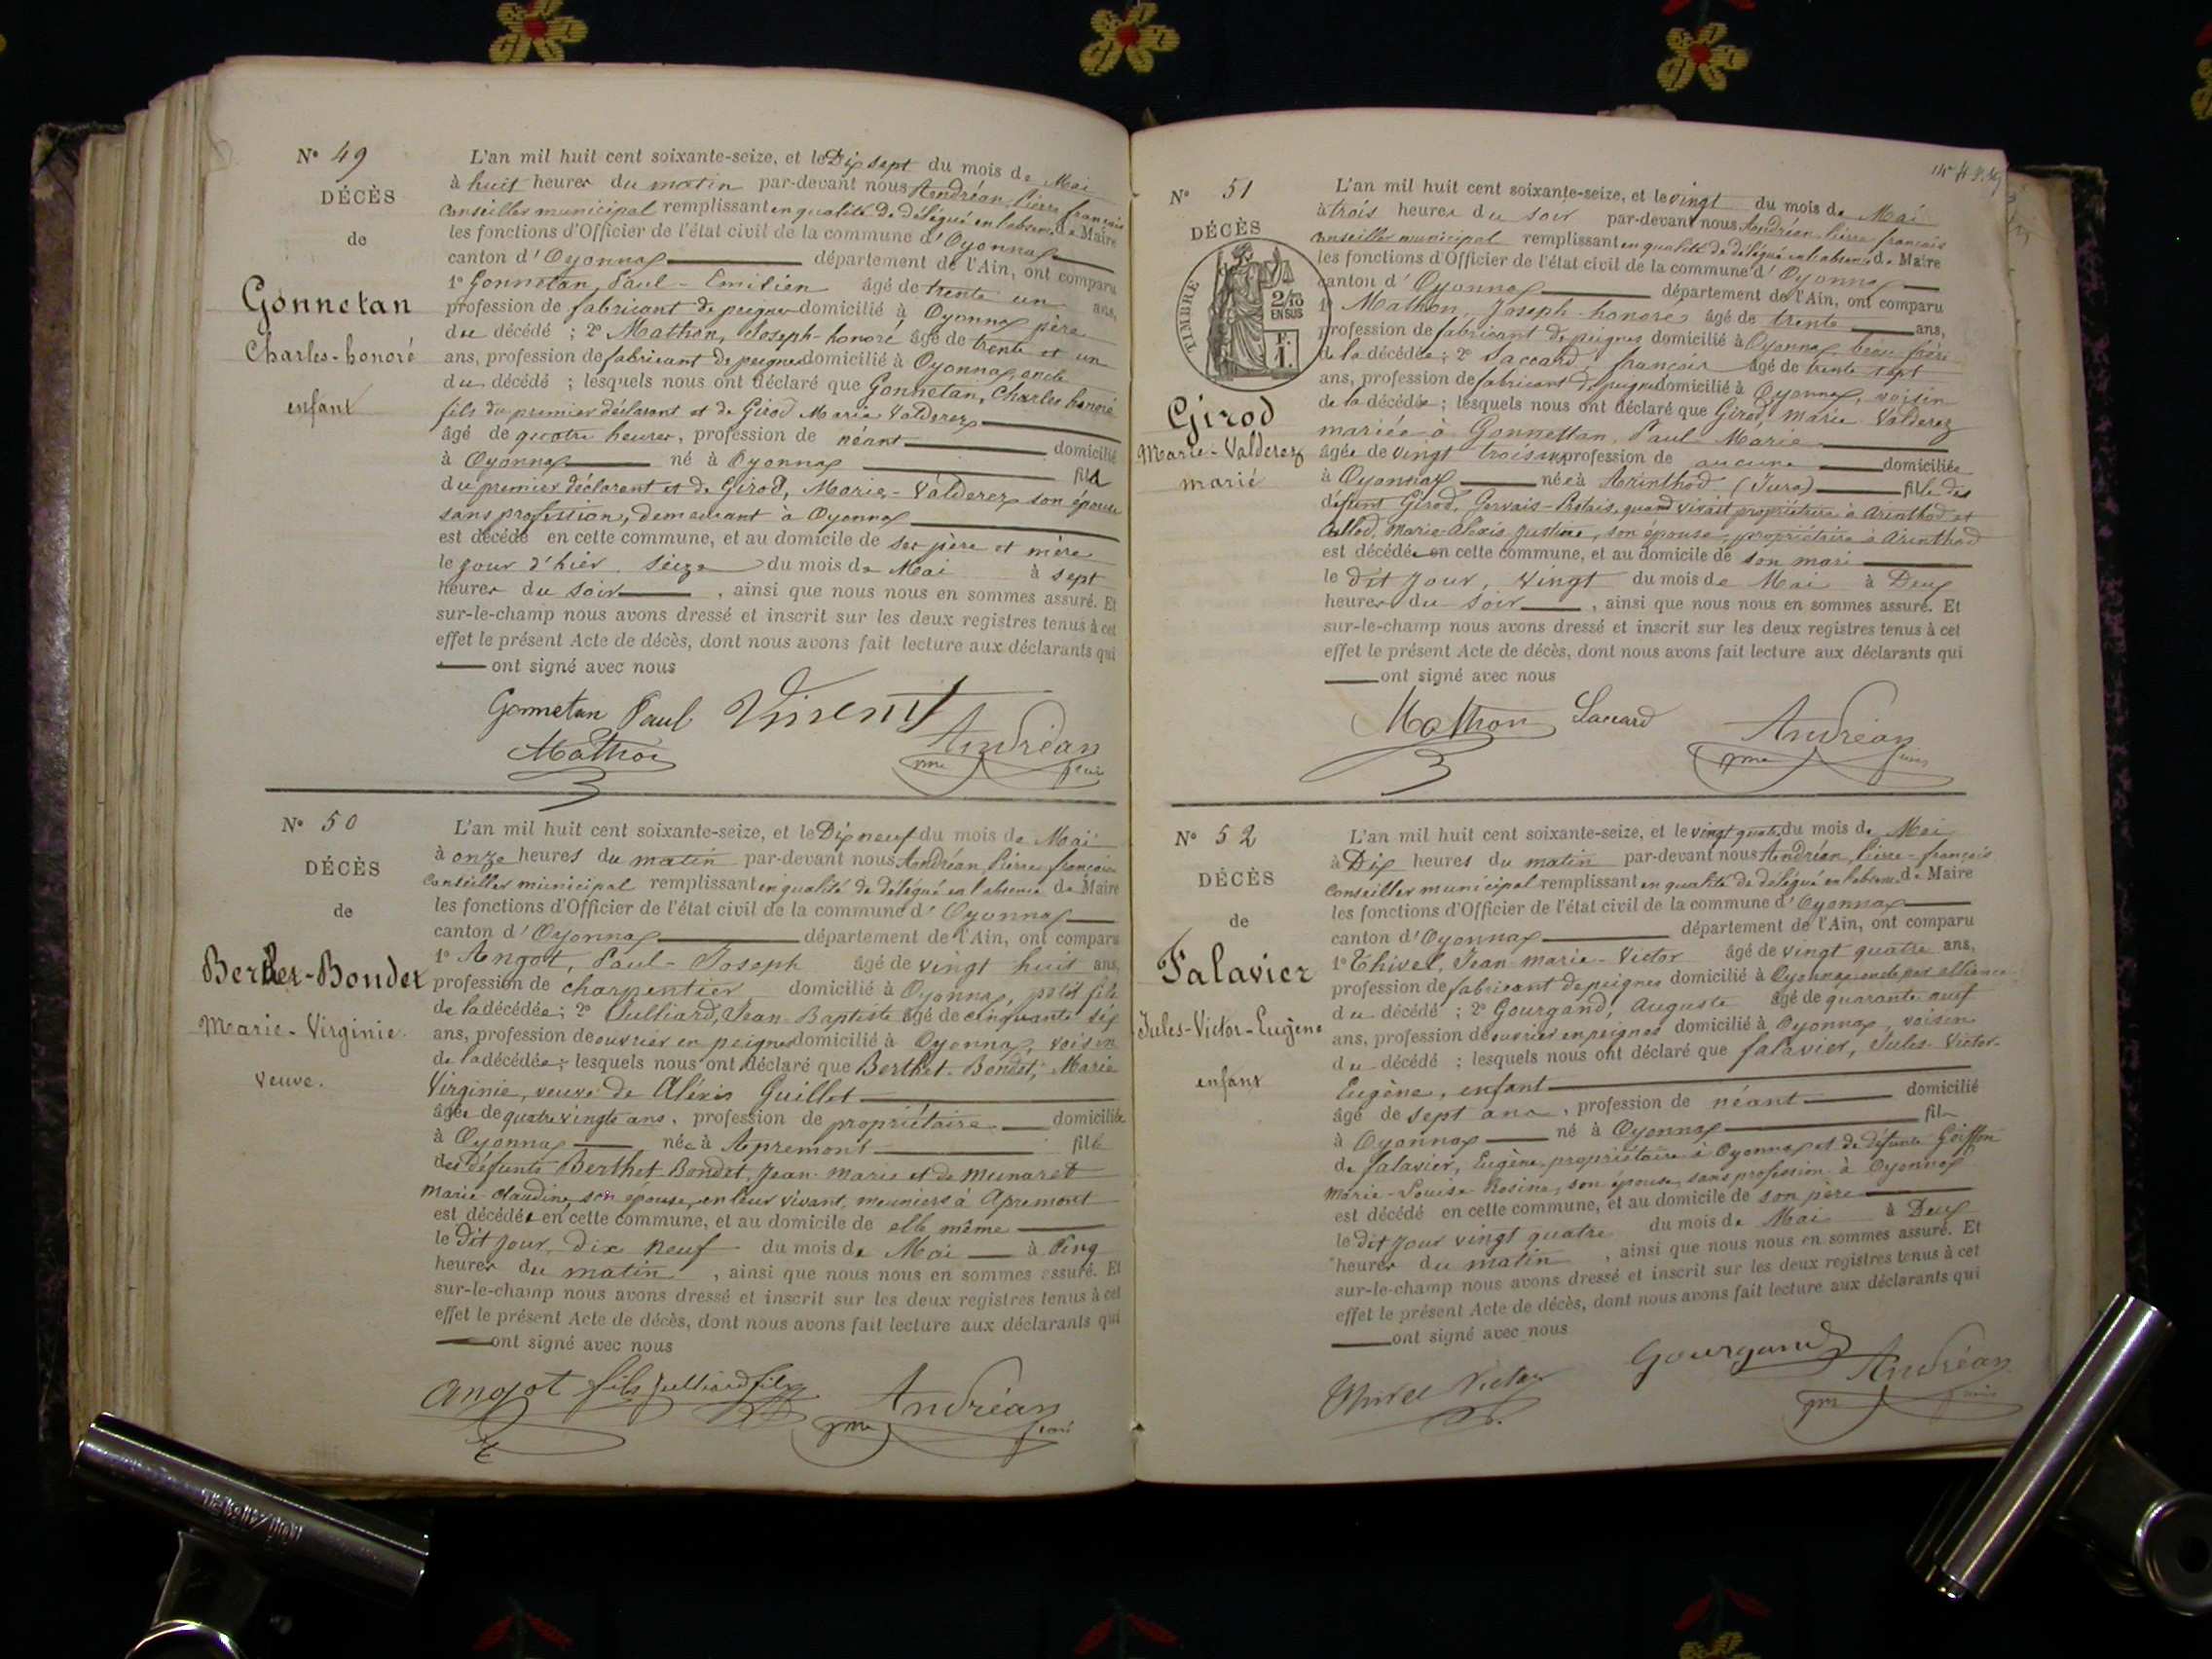 N° 49
DÉCÈS
de
Gonnetan
Charles-honoré
enfant
L'an mil huit cent soixante-seize, et le Dix sept du mois de Mai
à huit heures du matin par-devant nous Andréan, Pierre françois
Conseiller municipal remplissant en qualité de délégué en l'absence de Maire
les fonctions d'Officier de l'état civil de la commune d'Oyonnax
canton d'Oyonnax département de l'Ain, ont comparu
1° Gonnetan, Paul-Emilien âgé de trente un ans,
profession de fabricant de peignes domicilié à Oyonnax père
du décédé ; 2° Mathon, Joseph-honoré âgé de trente et un
ans, profession de fabricant de peignes domicilié à Oyonnax, oncle
du décédé ; lesquels nous ont déclaré que Gonnetan, Charles honoré
fils du premier déclarant et de Girod Marie Valderez
âgé de quatre heures, profession de néant domicilié
à Oyonnax né à Oyonnax fils
du premier déclarant et de Girod, Marie-Valderez son épouse
sans profession, demeurant à Oyonnax
est décédé en cette commune, et au domicile de ses père et mère
le jour d'hier, seize du mois de Mai à sept
heures du soir, ainsi que nous nous en sommes assuré. Et
sur-le-champ nous avons dressé et inscrit sur les deux registres tenus à cet
effet le présent Acte de décès, dont nous avons fait lecture aux déclarants qui
ont signé avec nous
Gonnetan Paul Vincent
Mathon Andréan
N° 50
DÉCÈS
de
Berthet-Bondet
Marie-Virginie.
Veuve.
L'an mil huit cent soixante-seize, et le Dix neuf du mois de Mai
à onze heures du matin par-devant nous Andréan, Pierre françois
Conseiller municipal remplissant en qualité de délégué en l'absence de Maire
les fonctions d'Officier de l'état civil de la commune d'Oyonnax
canton d'Oyonnax département de l'Ain, ont comparu
1° Angot, Paul-Joseph âgé de vingt huit ans,
profession de charpentier domicilié à Oyonnax, petit fils
de la décédée; 2° Julliard, Jean Baptiste âgé de cinquante six
ans, profession de ouvrier en peignes domicilié à Oyonnax, voisin
de la décédée; lesquels nous ont déclaré que Berthet-Bondet, Marie
Virginie, veuve de Aléxis Guillot
âgée de quatre vingts ans, profession de propriétaire domiciliée
à Oyonnax née à Apremont fille
des défunts Berthet-Bondet, Jean-Marie et de Munaret
Marie-Claudine, son épouse, en leur vivant, meuniers à Apremont
est décédée en cette commune, et au domicile de elle même
le dit jour, dix neuf du mois de Mai à Cinq
heures du matin, ainsi que nous nous en sommes assuré. Et
sur-le-champ nous avons dressé et inscrit sur les deux registres tenus à cet
effet le présent Acte de décès, dont nous avons fait lecture aux déclarants qui
ont signé avec nous
Angot fils Julliard fils Andréan
N° 51
DÉCÈS
TIMBRE
2/10
EN SUS
F.
1.
Girod
Marie-Valderez
marié
L'an mil huit cent soixante-seize, et le vingt du mois de Mai
à trois heures du soir par-devant nous Andréan Pierre françois
Conseiller municipal remplissant en qualité de délégué en l'absence de Maire
les fonctions d'Officier de l'état civil de la commune d'Oyonnax
canton d'Oyonnax département de l'Ain, ont comparu
1° Mathon, Joseph-honoré âgé de trente ans,
profession de fabricant de peignes domicilié à Oyonnax, beau frère
de la décédée; 2° Saccard, françois âgé de trente sept
ans, profession de fabricant de peignes domicilié à Oyonnax, voisin
de la décédée; lesquels nous ont déclaré que Girod, Marie Valderez
mariée à Gonnettan, Paul Marie
âgée de vingt trois ans, profession de aucune domiciliée
à Oyonnax née à Arinthod (Jura) fille des
défunt Girod, Gervais-Protais, quand vivait propriétaire à Arinthod et
Callod, Marie-Alexis Justine, son épouse, propriétaire à Arinthod
est décédée en cette commune, et au domicile de son mari
le dit jour, vingt du mois de Mai à Deux
heures du soir, ainsi que nous nous en sommes assuré. Et
sur-le-champ nous avons dressé et inscrit sur les deux registres tenus à cet
effet le présent Acte de décès, dont nous avons fait lecture aux déclarants qui
ont signé avec nous
Mathon Saccard Andréan
N° 52
DÉCÈS
de
Falavier
Jules-Victor-Eugène
enfant
L'an mil huit cent soixante-seize, et le vingt quatre du mois de Mai
à Dix heures du matin par-devant nous Andréan, Pierre-françois
Conseiller municipal remplissant en qualité de délégué en l'absence de Maire
les fonctions d'Officier de l'état civil de la commune d'Oyonnax
canton d'Oyonnax département de l'Ain, ont comparu
1° Thivel, Jean-Marie-Victor âgé de vingt quatre ans,
profession de fabricant de peignes domicilié à Oyonnax oncle par alliance
du décédé ; 2° Gourgand, Auguste âgé de quarante neuf
ans, profession de ouvrier en peignes domicilié à Oyonnax, voisin
du décédé ; lesquels nous ont déclaré que falavier, Jules-Victor-
Eugène, enfant
âgé de sept ans, profession de néant domicilié
à Oyonnax né à Oyonnax fils
de falavier, Eugène, propriétaire à Oyonnax et de défunte Goiffon
Marie-Louise Rosine, son épouse, sans profession à Oyonnax
est décédé en cette commune, et au domicile de son père
le dit jour vingt quatre du mois de Mai à Deux
heures du matin, ainsi que nous nous en sommes assuré. Et
sur-le-champ nous avons dressé et inscrit sur les deux registres tenus à cet
effet le présent Acte de décès, dont nous avons fait lecture aux déclarants qui
ont signé avec nous
Thivel Victor Gourgand Andréan